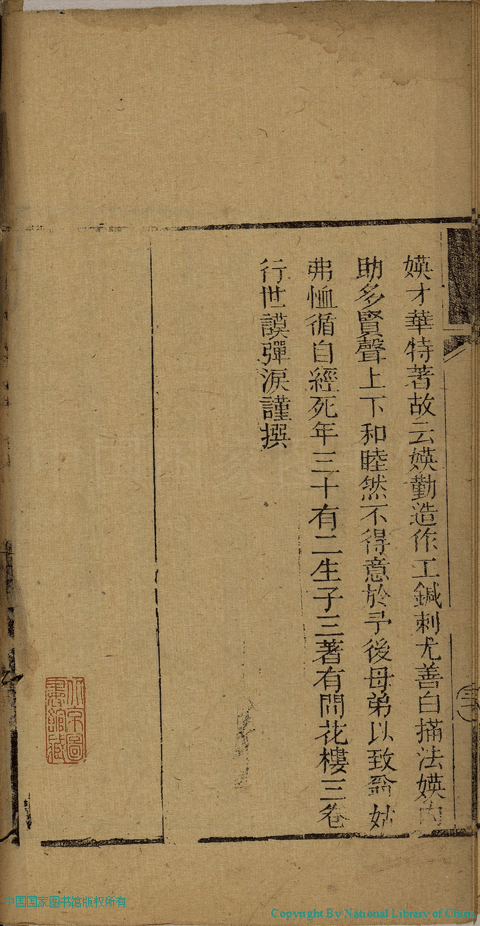 媖才華特著故云媖勤造作工鍼刺尤善白描法媖內
助多賢聲上下和睦然不得意於予後母弟以致翁姑
弗恤循自經死年三十有二生子三著有問花樓三卷
行世謨彈淚謹撰
北京圖
書館藏
中国国家图书馆版权所有
Copyright By National Library of China